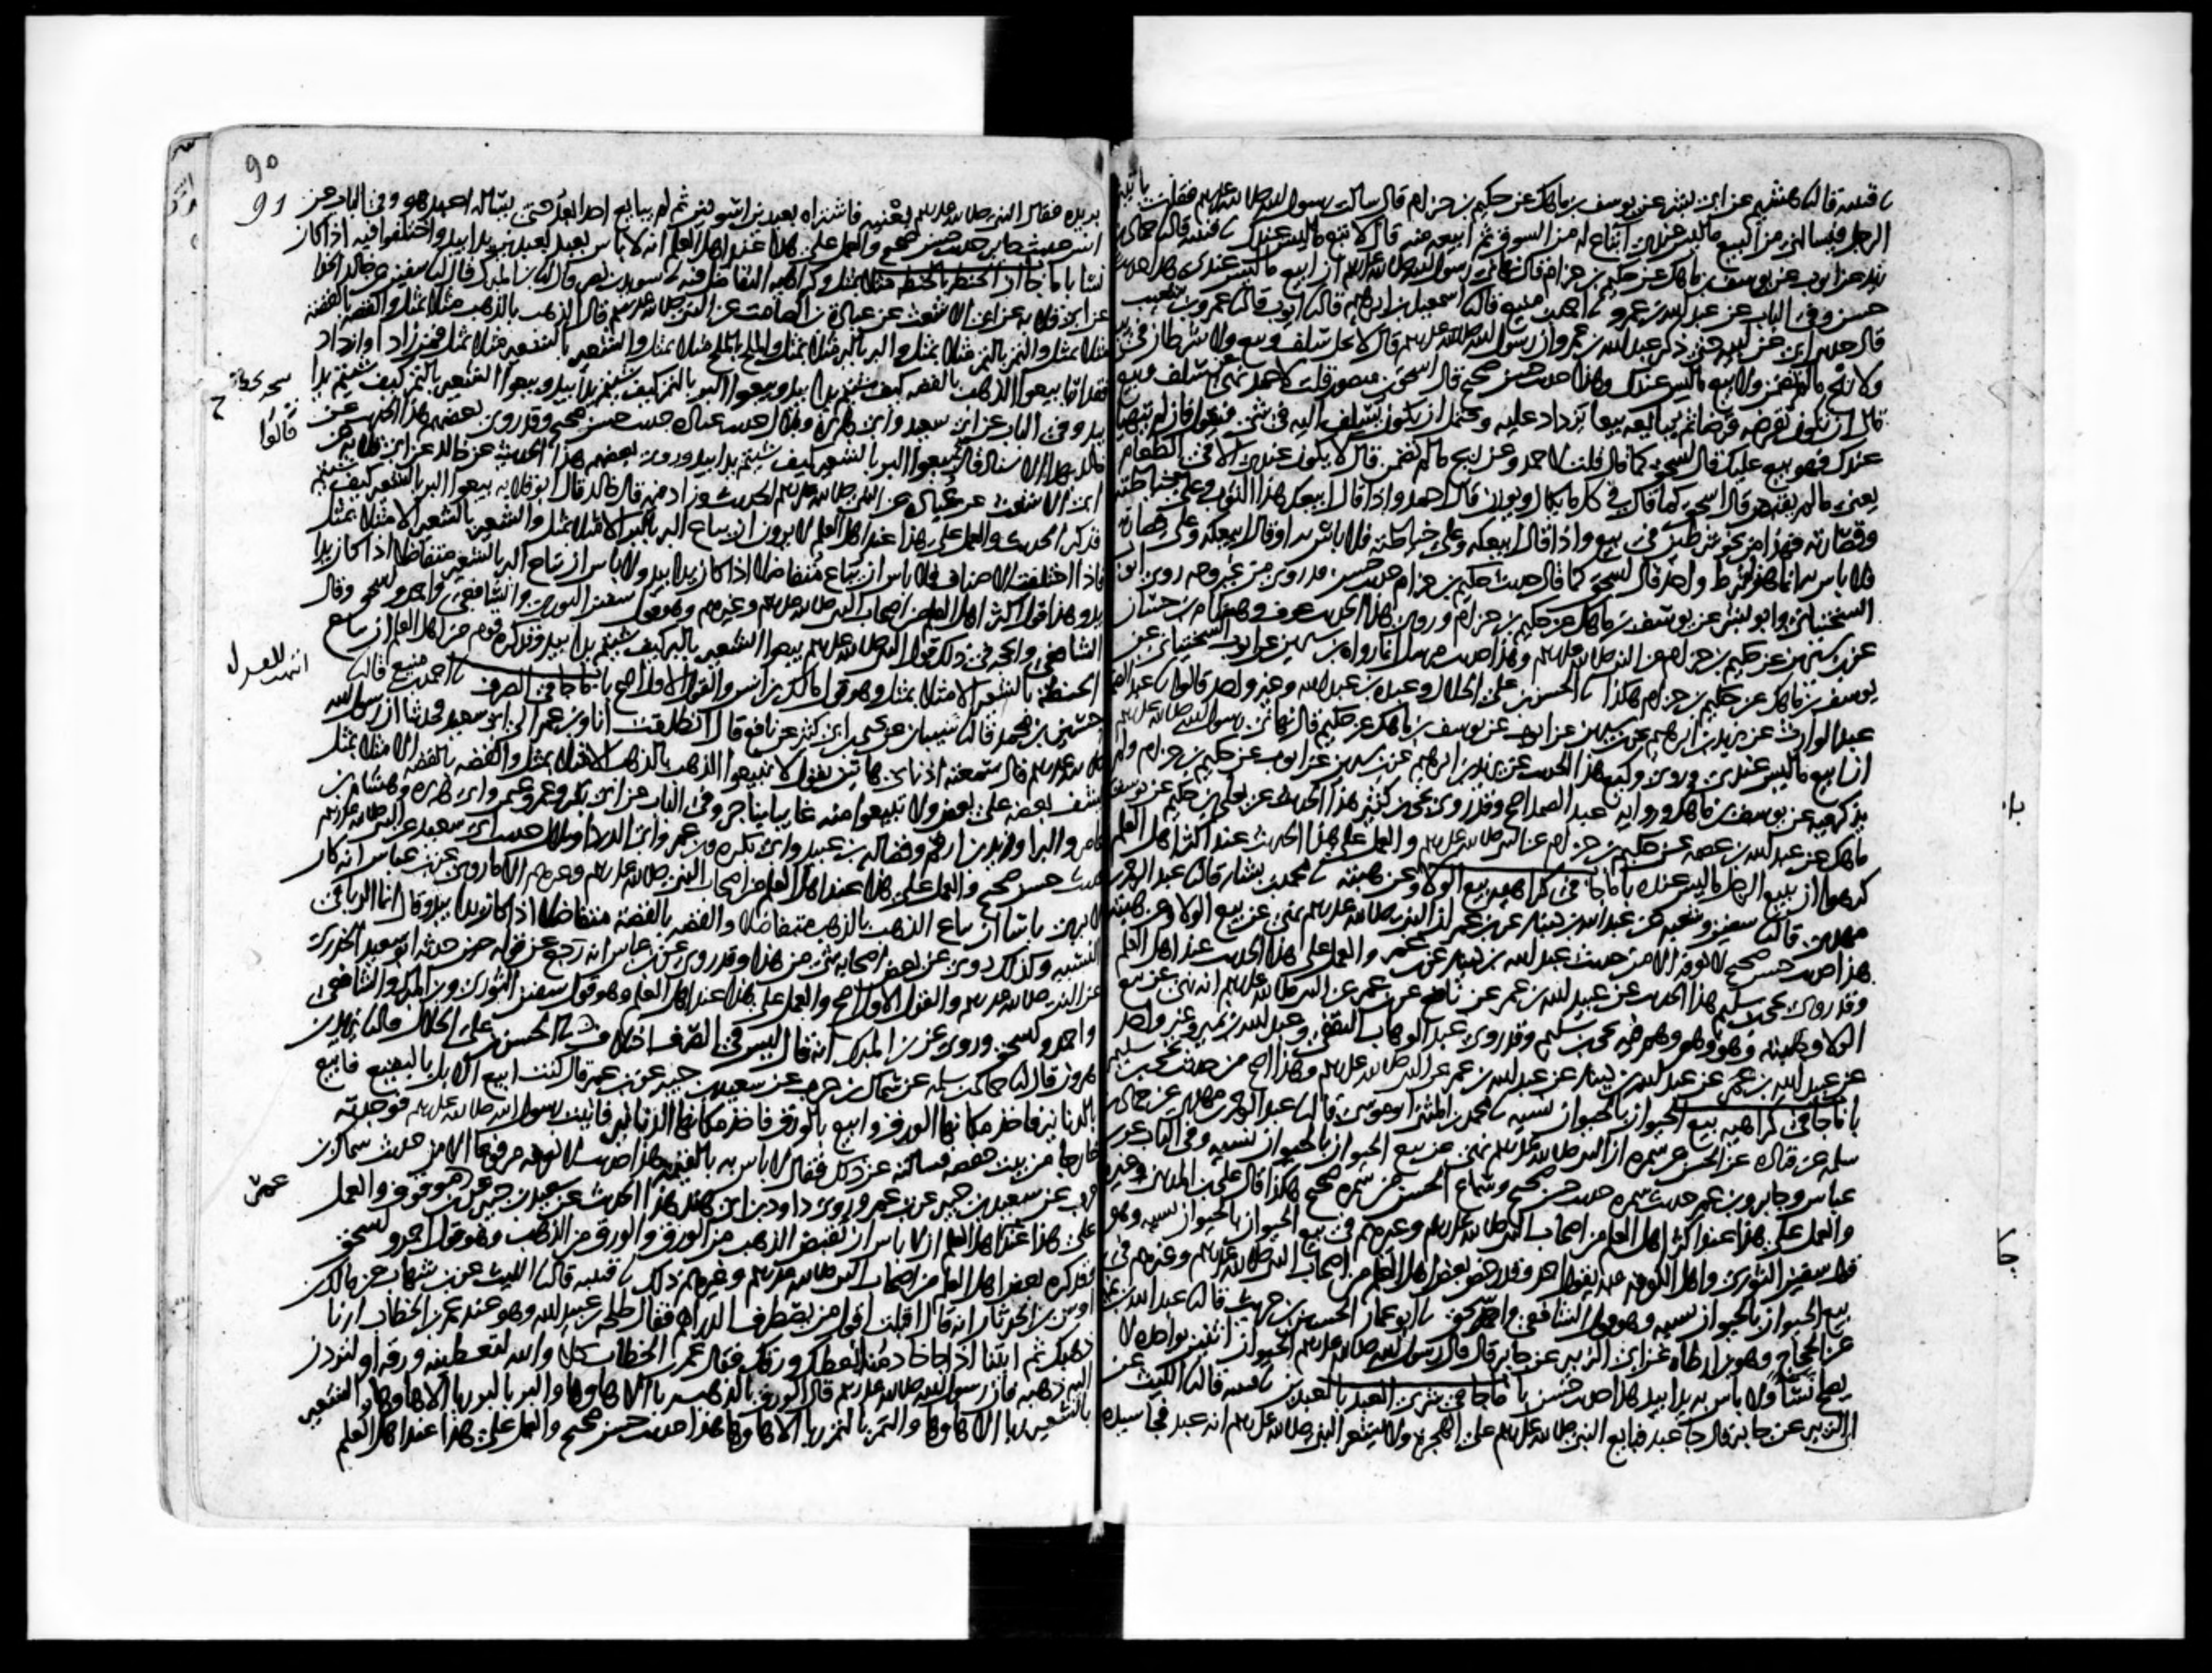 نا قتيبة قال نا هشيم عن ابي بشر عن يوسف بن ماهك عن حكيم بن حزام قال سالت رسول الله صلى الله عليه وسلم فقلت ياتيني
الرجل فيسالني من البيع ما ليس عندي ابتاع له من السوق ثم ابيعه منه قال لا تبع ما ليس عندك نا قتيبة قال نا حماد بن
زيد عن ايوب عن يوسف بن ماهك عن حكيم بن حزام قال نهاني رسول الله صلى الله عليه وسلم ان ابيع ما ليس عندي وهذا حديث
حسن وفي الباب عن عبد الله بن عمرو نا احمد بن منيع قال نا اسمعيل بن ابرهيم قال نا ايوب قال نا عمرو بن شعيب
قال حدثني ابي عن ابيه حتى ذكر عبد الله بن عمرو ان رسول الله صلى الله عليه وسلم قال لا يحل سلف وبيع ولا شرطان في بيع
ولا ربح ما لم يضمن ولا بيع ما ليس عندك وهذا حديث حسن صحيح قال اسحق بن منصور قلت لاحمد ما معنى نهى عن سلف وبيع
قال ان يكون يقرضه قرضا ثم يبايعه بيعا يزداد عليه ويحتمل ان يكون يسلف اليه في شي فيقول ان لم يتهيا
عندك فهو بيع عليك قال اسحق كما قال قلت لاحمد وعن بيع ما لم تضمن قال لا يكون عندي الا في الطعام
يعني ما لم يقبض قال اسحق كما قال في كل ما يكال ويوزن قال احمد واذا قال ابيعك هذا الثوب وعلي خياطته
وقصارته فهذا من نحو شرطين في بيع واذا قال ابيعكه وعلي خياطته فلا باس به او قال ابيعكه وعلي قصارته
فلا باس به انما هذا شرط واحد قال اسحق كما قال حديث حكيم بن حزام حديث حسن قد روي من غير وجه روى ايوب
السختياني وابو بشر عن يوسف بن ماهك عن حكيم بن حزام وروى هذا الحديث عوف وهشام بن حسان
عن بن سيرين عن حكيم بن حزام عن النبي صلى الله عليه وسلم وهذا حديث مرسل انما رواه بن سيرين عن ايوب السختياني عن
يوسف بن ماهك عن حكيم بن حزام هكذا نا الحسن بن علي الخلال وعبدة بن عبد الله وغير واحد قالوا نا عبد الصمد بن
عبد الوارث عن يزيد بن ابرهيم عن بن سيرين عن ايوب عن يوسف بن ماهك عن حكيم قال نهاني رسول الله صلى الله عليه وسلم
ان ابيع ما ليس عندي وروى وكيع هذا الحديث عن يزيد بن ابرهيم عن بن سيرين عن ايوب عن حكيم بن حزام ولم
يذكر فيه عن يوسف بن ماهك ورواية عبد الصمد اصح وقد روى يحيى بن ابي كثير هذا الحديث عن يعلى بن حكيم عن يوسف بن
ماهك عن عبد الله بن عصمة عن حكيم بن حزام عن النبي صلى الله عليه وسلم والعمل على هذا الحديث عند اكثر اهل العلم
كرهوا ان يبيع الرجل ما ليس عنده باب ما جا في كراهية بيع الولا وعن هبته نا محمد بن بشار قال نا عبد الرحمن بن
مهدي قال نا سفين وشعبة عن عبد الله بن دينار عن بن عمر ان النبي صلى الله عليه وسلم نهى عن بيع الولا وعن هبته
هذا حديث حسن صحيح لا نعرفه الا من حديث عبد الله بن دينار عن بن عمر والعمل على هذا الحديث عند اهل العلم
وقد روى يحيى بن سليم هذا الحديث عن عبيد الله بن عمر عن نافع عن بن عمر عن النبي صلى الله عليه وسلم انه نهى عن بيع
الولا وهبته وهو وهم وهم فيه يحيى بن سليم وقد روى عبد الوهاب الثقفي وعبد الله بن نمير وغير واحد
عن عبيد الله بن عمر عن عبد الله بن دينار عن عبد الله بن عمر عن النبي صلى الله عليه وسلم وهذا اصح من حديث يحيى بن سليم
باب ما جا في كراهية بيع الحيوان بالحيوان نسيه نا محمد بن المثنى ابو موسى قال نا عبد الرحمن بن مهدي عن حماد بن
سلمة عن قتادة عن الحسن عن سمرة ان النبي صلى الله عليه وسلم نهى عن بيع الحيوان بالحيوان نسيه وفي الباب عن بن
عباس وجابر وبن عمر حديث سمرة حديث حسن صحيح وسماع الحسن من سمرة صحيح هكذا قال علي بن المديني وغيره
والعمل على هذا عند اكثر اهل العلم من اصحاب النبي صلى الله عليه وسلم وغيرهم في بيع الحيوان بالحيوان نسيه وهو
قول سفين الثوري واهل الكوفة وبه يقول احمد وقد رخص بعض اهل العلم من اصحاب النبي صلى الله عليه وسلم وغيرهم في
بيع الحيوان بالحيوان نسيه وهو قول الشافعي واسحق نا ابو عمار الحسين بن حريث قال نا عبد الله بن نمير
عن الحجاج وهو بن ارطاة عن ابي الزبير عن جابر قال قال رسول الله صلى الله عليه وسلم الحيوان اثنين بواحدة لا
يصلح نسا ولا باس به يدا بيد هذا حديث حسن باب ما جا في شرى العبد بالعبدين نا قتيبة قال نا الليث عن
ابي الزبير عن جابر قال جا عبد فبايع النبي صلى الله عليه وسلم على الهجرة ولا يشعر النبي صلى الله عليه وسلم انه عبد فجا سيده
با
جا
90
91
يريده فقال النبي صلى الله عليه وسلم بعنيه فاشتراه بعبدين اسودين ثم لم يبايع احدا بعد حتى يساله اعبد هو وفي الباب عن
انس حديث جابر حديث حسن صحيح والعمل على هذا عند اهل العلم انه لا باس بعبد بعبدين يدا بيد واختلفوا فيه اذا كان
نسا باب ما جا ان الحنطة بالحنطة مثلا بمثل وكراهية التفاضل فيه نا سويد بن نصر قال نا بن المبرك قال نا سفين عن خالد الحذا
عن ابي قلابة عن ابي الاشعث عن عبادة بن الصامت عن النبي صلى الله عليه وسلم قال الذهب بالذهب مثلا بمثل والفضة بالفضة
مثلا بمثل والتمر بالتمر مثلا بمثل والبر بالبر مثلا بمثل والملح بالملح مثلا بمثل والشعير بالشعير مثلا بمثل فمن زاد او ازداد
فقد اربا بيعوا الذهب بالفضة كيف شيتم يدا بيد وبيعوا البر بالتمر كيف شيتم يدا بيد وبيعوا الشعير بالتمر كيف شيتم يدا
بيد وفي الباب عن ابي سعيد وابي هريرة وبلال حديث عبادة حديث حسن صحيح وقد روى بعضهم هذا الحديث عن
خالد بهذا الاسناد قال بيعوا البر بالشعير كيف شيتم يدا بيد وروى بعضهم هذا الحديث عن خالد عن ابي قلابة عن
ابي الاشعث عن عبادة عن النبي صلى الله عليه وسلم الحديث وزاد فيه قال خالد قال ابو قلابة بيعوا البر بالشعير كيف شيتم
فذكر الحديث والعمل على هذا عند اهل العلم لا يرون ان يباع البر بالبر الا مثلا بمثل والشعير بالشعير الا مثلا بمثل
فاذا اختلفت الاصناف فلا باس ان يباع متفاضلا اذا كان يدا بيد ولا باس ان يباح البر بالشعير متفاضلا اذا كان يدا
بيد وهذا قول اكثر اهل العلم من اصحاب النبي صلى الله عليه وسلم وغيرهم وهو قول سفين الثوري والشافعي واحمد واسحق وقال
الشافعي والحجة في ذلك قول النبي صلى الله عليه وسلم بيعوا الشعير بالبر كيف شيتم يدا بيد وقد كره قوم من اهل العلم ان يباع
الحنطة بالشعير الا مثلا بمثل وهو قول مالك بن انس والقول الاول اصح باب ما جا في الصرف نا احمد بن منيع قال نا
حسين بن محمد قال نا شيبان عن يحيى بن ابي كثير عن نافع قال انطلقت انا وبن عمر الى ابي سعيد فحدثنا ان رسول الله
صلى الله عليه وسلم قال سمعته اذناي هاتين يقول لا تبيعوا الذهب بالذهب الا مثلا بمثل والفضة بالفضة الا مثلا بمثل
لا يشف بعضه على بعض ولا تبيعوا منه غايبا بناجز وفي الباب عن ابي بكر وعمر وعثمن وابي هريرة وهشام بن
عامر والبرا وزيد بن ارقم وفضالة بن عبيد وابي بكرة وبن عمر وابي الدردا وبلال حديث ابي سعيد عن النبي صلى الله عليه وسلم
حديث حسن صحيح والعمل على هذا عند اهل العلم من اصحاب النبي صلى الله عليه وسلم وغيرهم الا ما روي عن بن عباس انه كان
لا يرى باسا ان يباع الذهب بالذهب متفاضلا والفضة بالفضة متفاضلا اذا كان يدا بيد وقال انما الربا في
النسيه وكذلك روي عن بعض اصحابه شي من هذا وقد روي عن بن عباس انه رجع عن قوله حين حدثه ابو سعيد الخدري
عن النبي صلى الله عليه وسلم والقول الاول اصح والعمل على هذا عند اهل العلم وهو قول سفين الثوري وبن المبرك والشافعي
واحمد واسحق وروي عن بن المبرك انه قال ليس في الصرف اختلاف نا الحسن بن علي الخلال قال نا يزيد بن
هرون قال نا حماد بن سلمة عن سماك بن حرب عن سعيد بن جبير عن بن عمر قال كنت ابيع الابل بالبقيع فابيع
بالدنانير فاخذ مكانها الورق وابيع بالورق فاخذ مكانها الدنانير فاتيت رسول الله صلى الله عليه وسلم فوجدته
خارجا من بيت حفصة فسالته عن ذلك فقال لا باس به بالقيمة هذا حديث لا نعرفه مرفوعا الا من حديث سماك بن
حرب عن سعيد بن جبير عن بن عمر وروى داود بن ابي هند هذا الحديث عن سعيد بن جبير عن بن عمر موقوف والعمل
على هذا عند اهل العلم ان لا باس ان يقبض الذهب من الورق والورق من الذهب وهو قول احمد واسحق
وقد كره بعض اهل العلم من اصحاب النبي صلى الله عليه وسلم وغيرهم ذلك نا قتيبة قال نا الليث عن بن شهاب عن مالك بن
اوس بن الحدثان انه قال اقبلت اقول من يصطرف الدراهم فقال طلحة بن عبيد الله وهو عند عمر بن الخطاب ارنا
ذهبك ثم ايتنا اذا جا خادمنا نعطك ورقك فقال عمر بن الخطاب كلا والله لتعطينه ورقه او لتردن
اليه ذهبه فان رسول الله صلى الله عليه وسلم قال الورق بالذهب ربا الا ها وها والبر بالبر ربا الا ها وها والشعير
بالشعير ربا الا ها وها والتمر بالتمر ربا الا ها وها هذا حديث حسن صحيح والعمل على هذا عند اهل العلم
قالوا